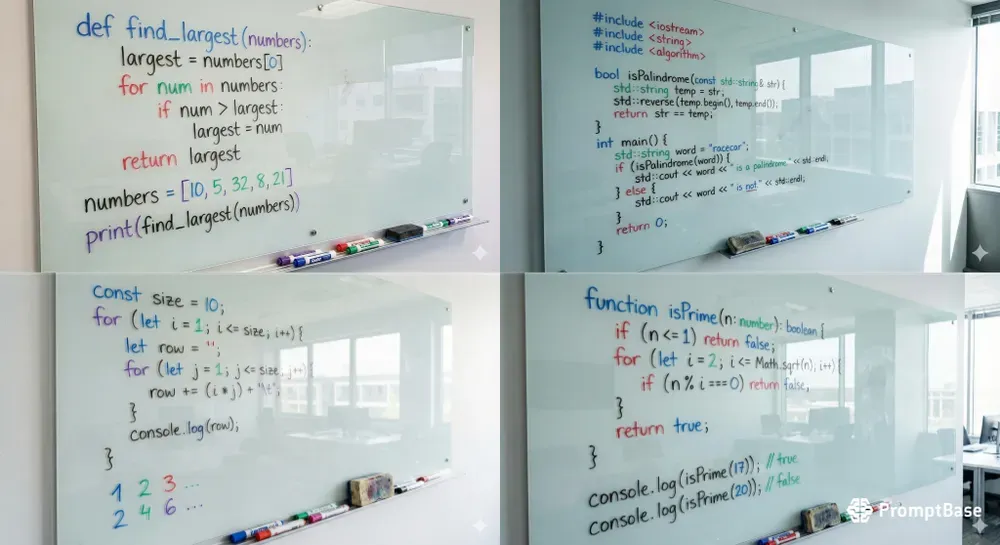 def find_largest(numbers):
largest = numbers[0]
for num in numbers:
if num > largest:
largest = num
return largest
numbers = [10, 5, 32, 8, 21]
print(find_largest(numbers))
#include <iostream>
#include <string>
#include <algorithm>
bool isPalindrome(const std::string& str) {
std::string temp = str;
std::reverse(temp.begin(), temp.end());
return str == temp;
}
int main() {
std::string word = "racecar";
if (isPalindrome(word)) {
std::cout << word << " is a palindrome" << std::endl;
} else {
std::cout << word << " is not" << std::endl;
}
return 0;
}
const size = 10;
for (let i = 1; i <= size; i++) {
let row = "";
for (let j = 1; j <= size; j++) {
row += (i * j) + "\t";
}
console.log(row);
}
1 2 3 ...
2 4 6 ...
function isPrime(n: number): boolean {
if (n <= 1) return false;
for (let i = 2; i <= Math.sqrt(n); i++) {
if (n % i === 0) return false;
}
return true;
}
console.log(isPrime(17)); // true
console.log(isPrime(20)); // false
PromptBase